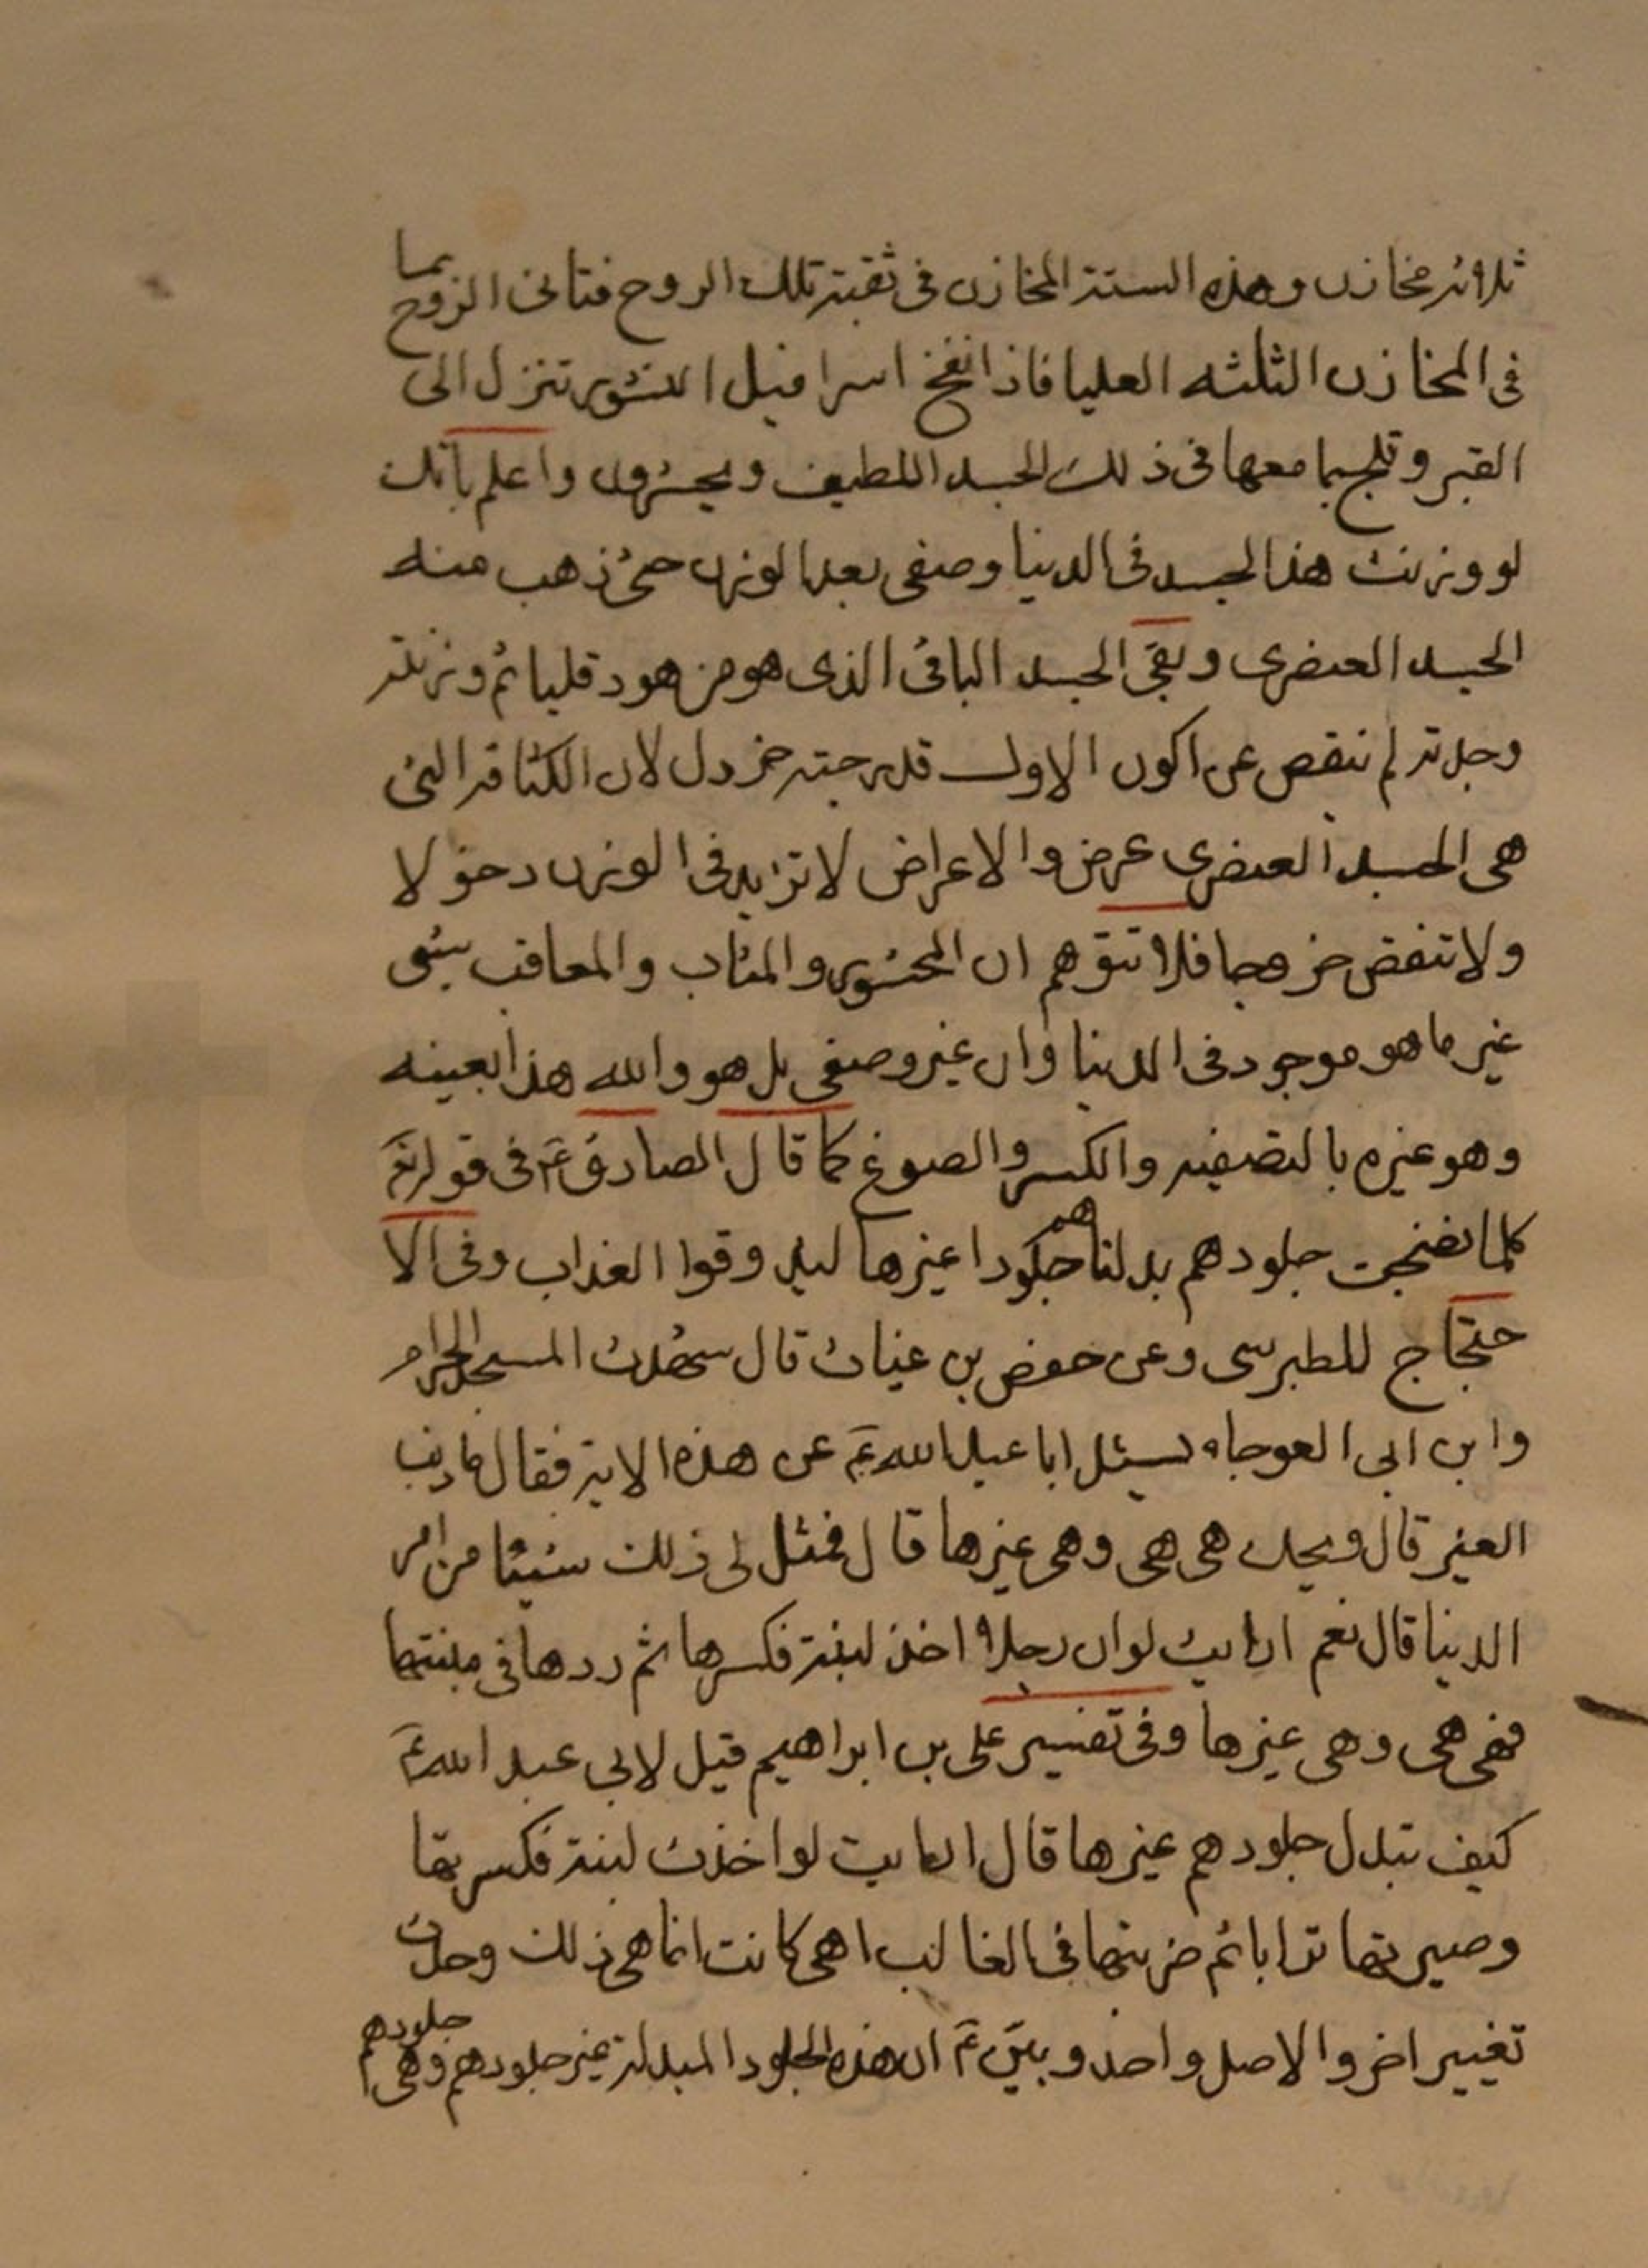 ثلاثة مخازن وهذه الستة المخازن فى ثقبة تلك الروح فتاتى الروح بما
فى المخازن الثلثه العليا فاذا نفخ اسرافيل النشور تنزل الى
القبر وتلج بما معها فى ذلك الجسد اللطيف ويحشرون واعلم بانك
لو وزنت هذا الجسد فى الدنيا وصفى بعد الوزن حتى ذهب منه
الجسد العنصرى وبقى الجسد الباقى الذى هو من هورقليا ثم وزنته
وجدته لم ينقص عن اكون الاول قدر حبة خردل لان الكثافة التى
هى الجسد العنصرى عرض والاعراض لا تزيد فى الوزن دخولا
ولا تنقص خروجا فلا تتوهم ان المحشور والمثاب والمعاقب بشى
غير ما هو موجود فى الدنيا وان غير وصفى بل هو والله هذا بعينه
وهو غيره بالتصفية والكسر والصوغ كما قال الصادق ع فى قوله تع
كلما نضجت جلودهم بدلناهم جلودا غيرها ليذوقوا العذاب وفى الا
حتجاج للطبرسى وعن حفص بن غياث قال شهدت المسجد الحرام
وابن ابى العوجاء يسئل ابا عبد الله ع عن هذه الاية فقال ما ذنب
الغير قال ويحك هى هى وهى غيرها قال فمثل لى ذلك شيئا من امر
الدنيا قال نعم ارايت لو ان رجلا اخذ لبنة فكسرها ثم ردها فى ملبنتها
فهى هى وهى غيرها وفى تفسير على بن ابراهيم قيل لابى عبد الله ع
كيف تبدل جلودهم غيرها قال ارايت لو اخذت لبنة فكسرتها
وصيرتها ترابا ثم ضربتها فى الغالب اهى كانت انما هى ذلك وحدث
تغيير اخر والاصل واحد وبين ع ان هذه الجلود المبدلة غير جلودهم وهى جلودهم